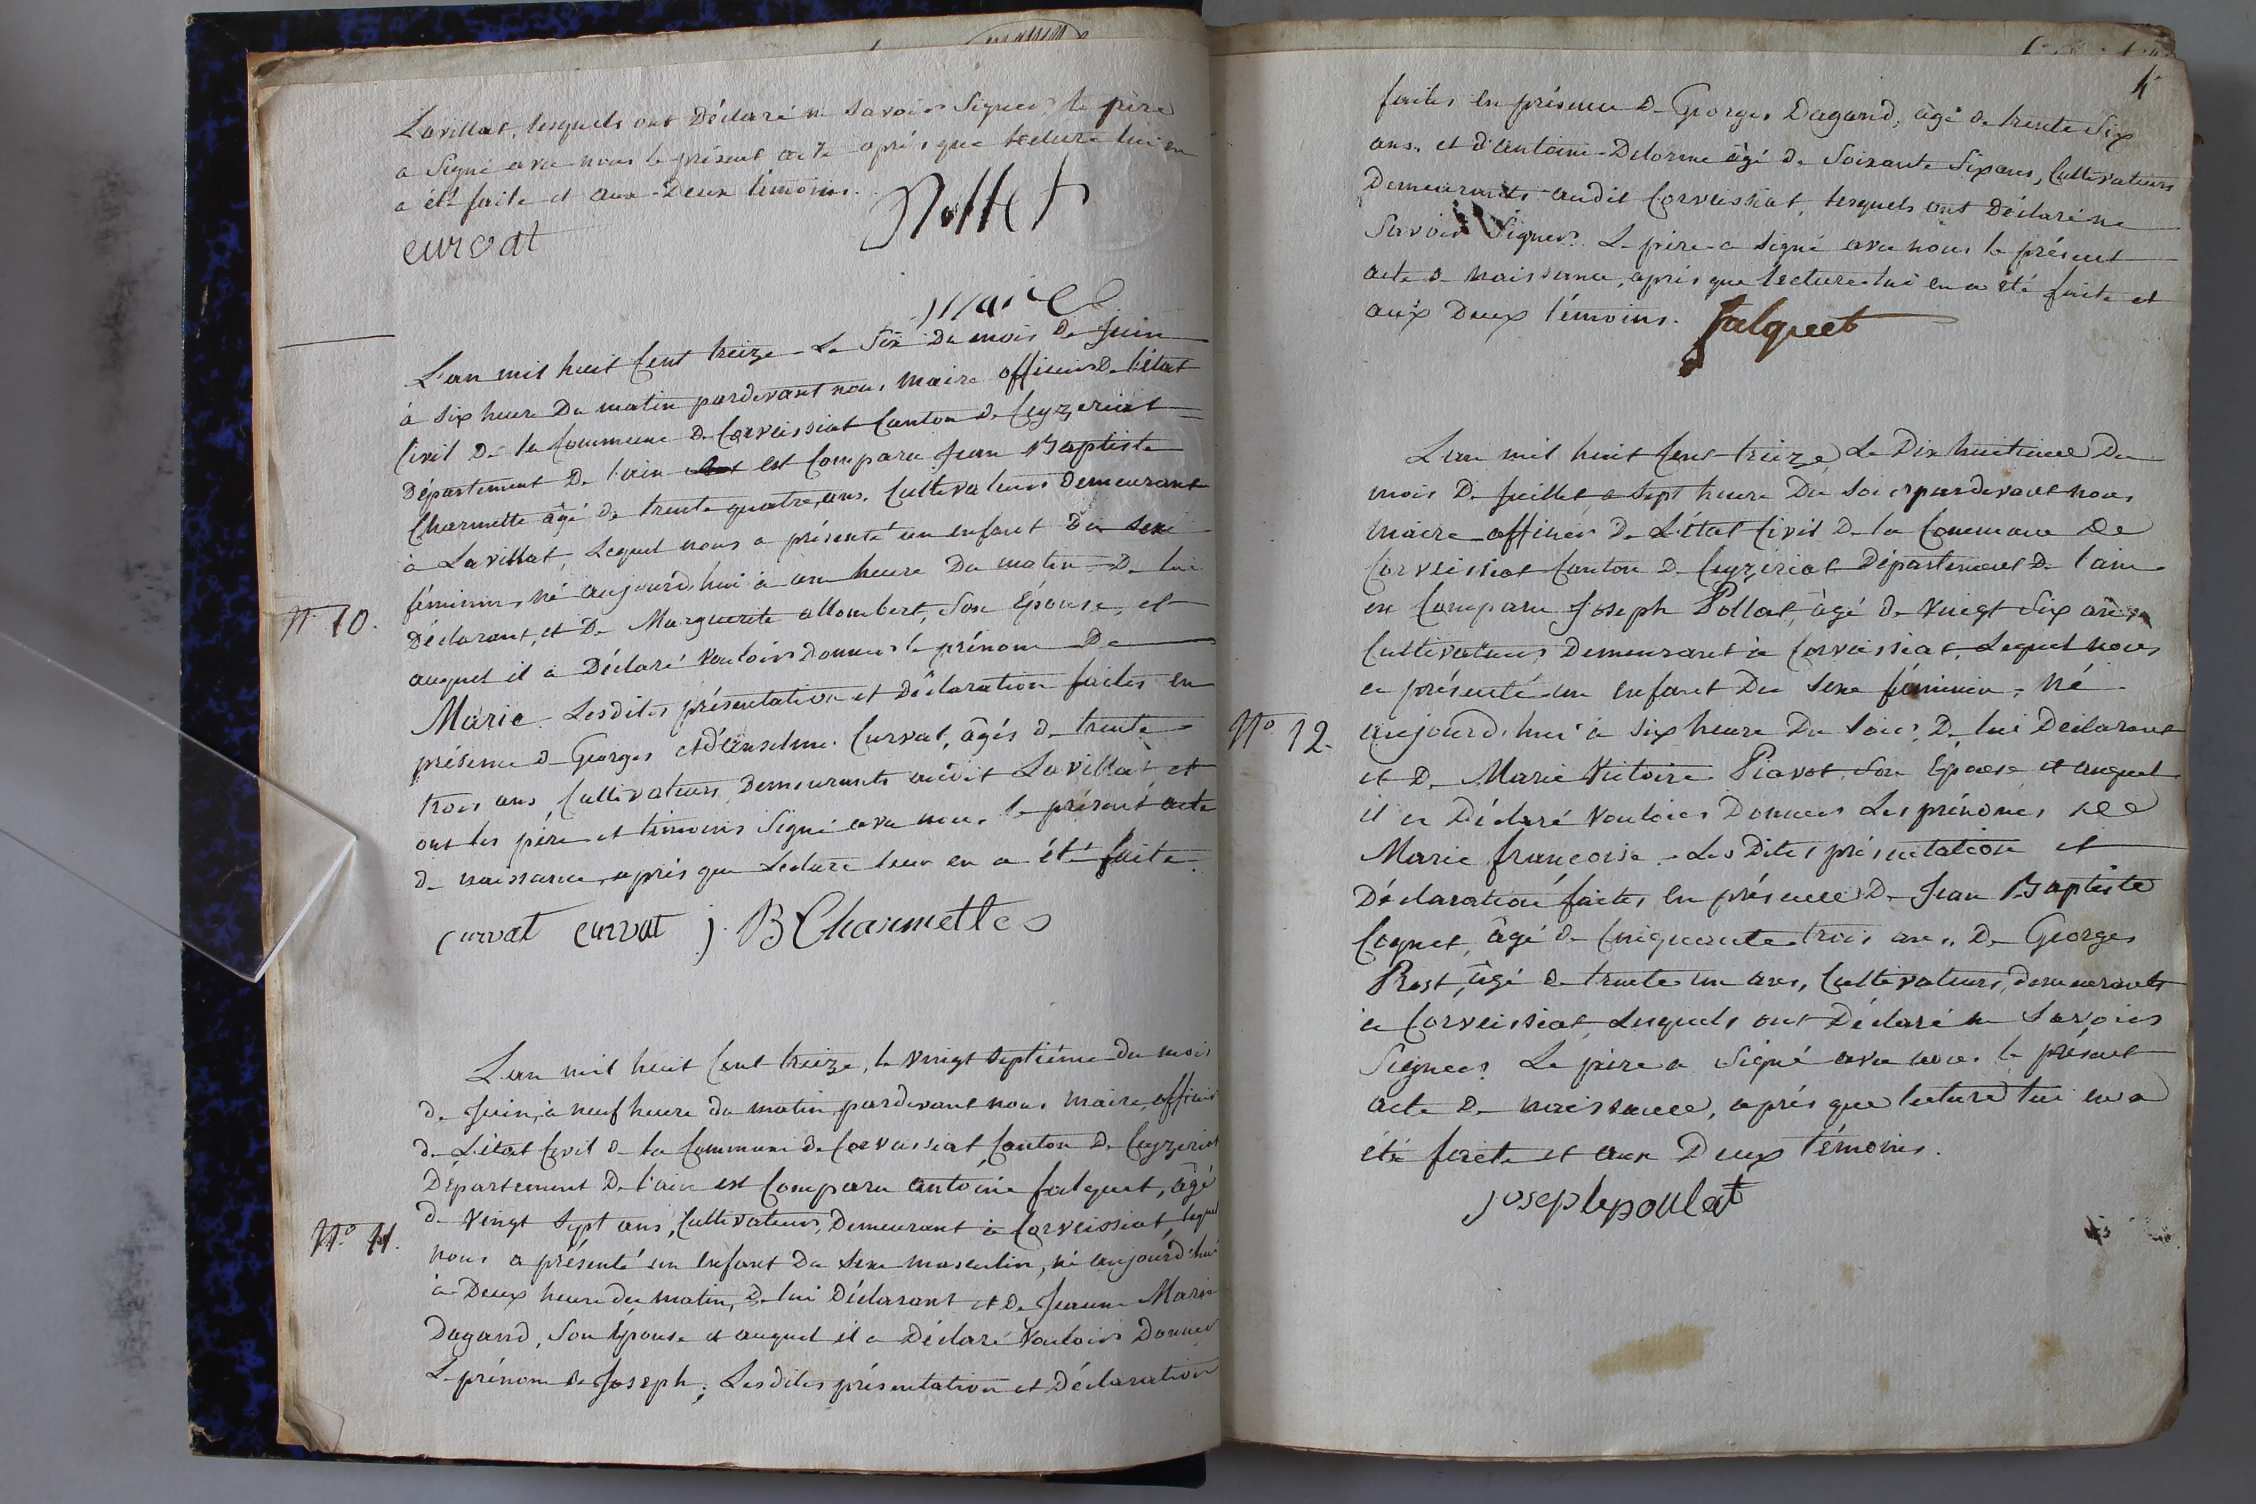 Lavillat, lesquels ont Déclaré ne savoir signer le père
a signé avec nous le présent acte après que lecture lui en
a été faite et aux Deux témoins.
curvat
maire
L'an mil huit Cent treize Le Six Du mois De Juin
à six heure Du matin pardevant nous maire officier De l'état
Civil De la Commune De Corveissiat Canton De Ceyzeriat
Département De l'ain est Comparu Jean Baptiste
Charmette âgé de trente quatre ans, Cultivateur Demeurant
à Lavillat, Lequel nous a présenté un enfant Du sexe
féminin né aujourd'hui à une heure Du matin De lui
N° 10.
Déclarant, et De Marguerite allombert, Son Epouse, et
auquel il a Déclaré vouloir Donner le prénom De
Marie. Lesdites présentation et Déclaration faites en
présence De Georges et d'anselme Curvat, âgés de trente
trois ans Cultivateurs Demeurants audit Lavillat et
ont les père et témoins signé avec nous le présent acte
de naissance, après que Lecture leur en a été faite.
curvat curvat j. B Charmettes
L'an mil huit Cent treize, le vingt septième du mois
de Juin, à neuf heure du matin pardevant nous maire, officier
de L'état Civil de la Commune de Corveissiat Canton De Ceyzeriat
Département De l'ain est Comparu antoine falquet, âgé
de vingt sept ans, Cultivateur, Demeurant à Corveissiat, lequel
N° 11.
nous a présenté un enfant Du sexe masculin, né aujourd'hui
à Deux heure du matin, De lui Déclarant et De Jeanne Marie
Dagand, Son épouse et auquel il a Déclaré vouloir Donner
Le prénom De Joseph; Lesdites présentation et Déclaration
4
faites en présence De Georges Dagand, âgé de trente Six
ans, et d'antoine Delorme âgé de Soixante Six ans, Cultivateurs
Demeurants audit Corveissiat, lesquels ont Déclaré ne
Savoir Signer. Le père a signé avec nous le présent
acte de Naissance, après que lecture lui en a été faite et
aux Deux témoins. falquet
L'an mil huit Cent treize, Le Dix huitième Du
mois De Juillet à sept heure Du soir pardevant nous
maire officier De L'état Civil De la Commune De
Corveissiat Canton De Ceyzériat Département De l'ain
est Comparu Joseph Pollat, âgé de vingt six ans
Cultivateur Demeurant à Corveissiat, Lequel nous
a présenté un enfant Du sexe féminin, né
N° 12.
aujourd'hui à six heure Du soir, De lui Déclarant
et De Marie Victoire Piavot Son Epouse et auquel
il a Déclaré vouloir Donner Les prénoms De
Marie françoise. Les Dites présentation et
Déclaration faites en présence De Jean Baptiste
Cognet, âgé de Cinquante trois ans, De Georges
Prost, âgé de trente un ans, Cultivateurs, demeurants
à Corveissiat Lesquels ont Déclaré ne Savoir
Signer. Le père a signé avec nous le présent
acte De naissance, après que lecture lui en a
été faite et aux Deux témoins.
joseph poulat